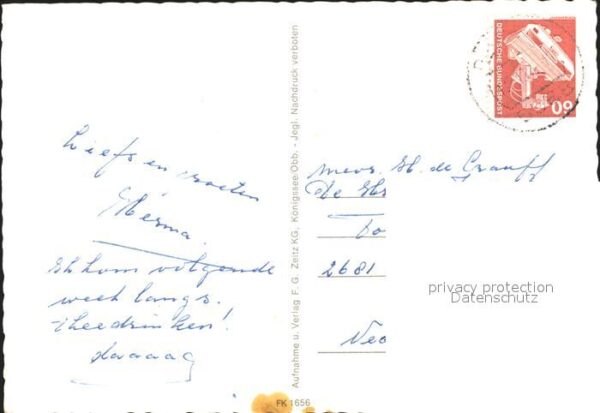 Liefs en groeten
Herma.
Ik kom volgende
week langs.
theedrinken!
daaaag
Aufnahme u. Verlag F. G. Zeitz KG, Königssee/Obb. - Jegl. Nachdruck verboten
FK 1656
DEUTSCHE BUNDESPOST
60
mevr. H. de Graaff
De Hr
2681
privacy protection
Datenschutz
Ned